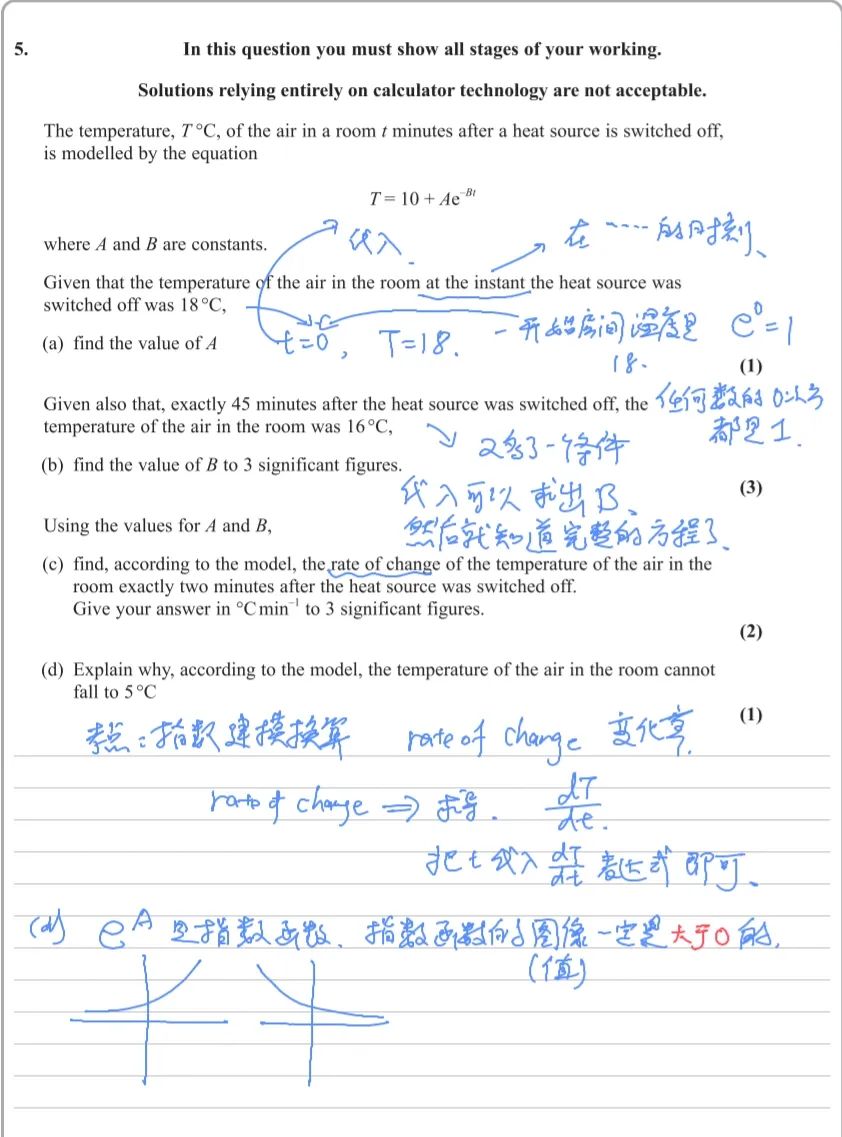 5.
In this question you must show all stages of your working.
Solutions relying entirely on calculator technology are not acceptable.
The temperature, T °C, of the air in a room t minutes after a heat source is switched off,
is modelled by the equation
T = 10 + Ae^{-Bt}
where A and B are constants.
代入
在 ······ 的时刻、
Given that the temperature of the air in the room at the instant the heat source was
switched off was 18 °C,
(a) find the value of A
t=0, T=18.
一开始房间温度是
18.
e^0=1
(1)
Given also that, exactly 45 minutes after the heat source was switched off, the
任何数的0次方
都是1.
temperature of the air in the room was 16 °C,
又多了一条件
(b) find the value of B to 3 significant figures.
(3)
代入可以求出B、
然后就知道完整的方程了、
Using the values for A and B,
(c) find, according to the model, the rate of change of the temperature of the air in the
room exactly two minutes after the heat source was switched off.
Give your answer in °C min^{-1} to 3 significant figures.
(2)
(d) Explain why, according to the model, the temperature of the air in the room cannot
fall to 5 °C
(1)
考点：指数建模换算
rate of change 变化率.
rate of change ⇒ 求导. dT/dt.
把t代入 dT/dt 表达式即可、
(d) e^A 是指数函数、指数函数的图像一定是大于0的.
(值)